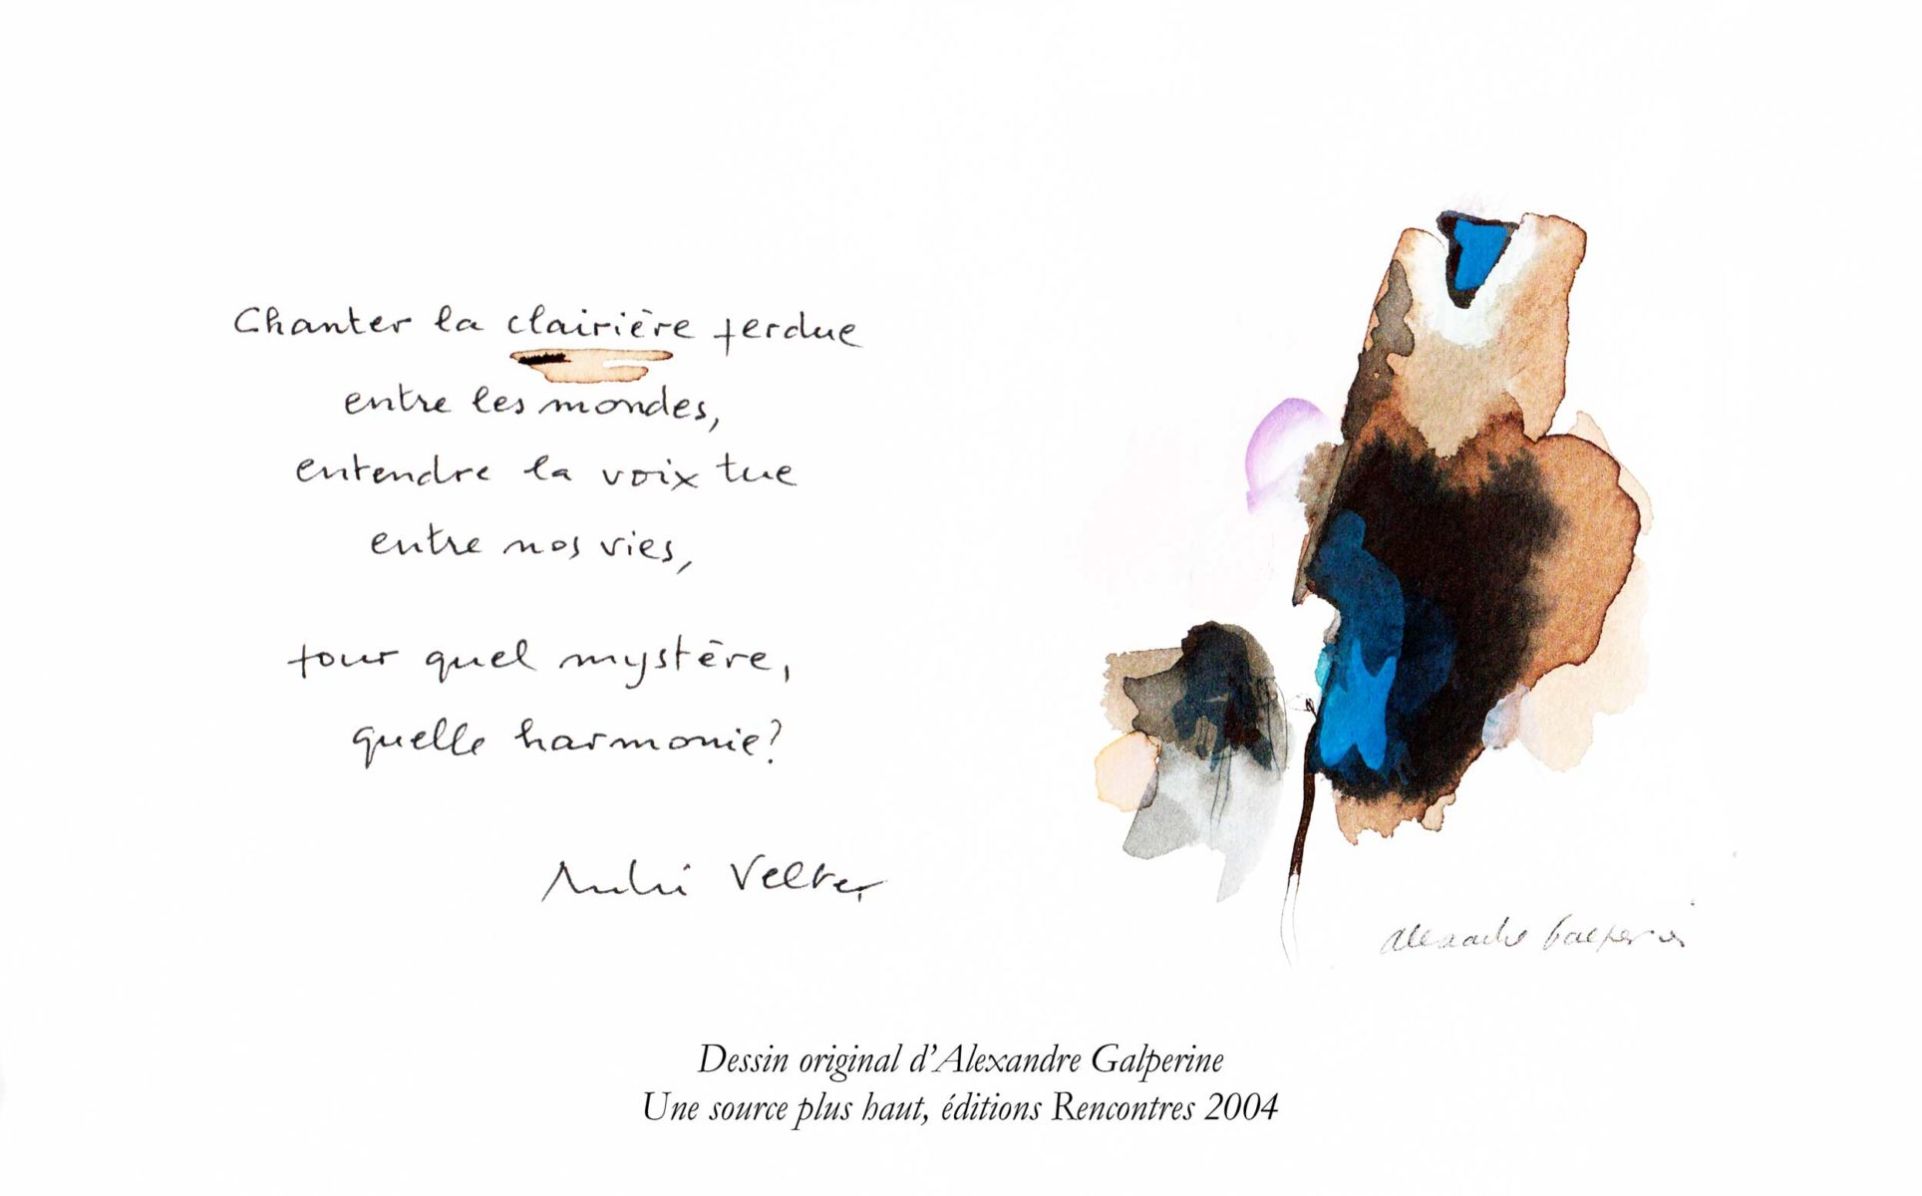 Chanter la clairière perdue
entre les mondes,
entendre la voix tue
entre nos vies,
pour quel mystère,
quelle harmonie?
André Velter
Alexandre Galperine
Dessin original d'Alexandre Galperine
Une source plus haut, éditions Rencontres 2004